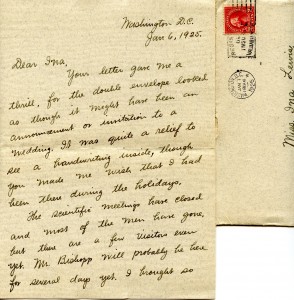 Washington D.C.
Jan 6, 1925.
Dear Ina,
Your letter gave me a
thrill, for the double envelope looked
as though it might have been an
announcement or invitation to a
wedding. It was quite a relief to
see a handwriting inside, though
you made me wish that I had
been there during the holidays.
The scientific meetings have closed
and most of the men have gone,
but there are a few visitors even
yet. Mr Bishopp will probably be here
for several days yet. I brought so
Miss Ina